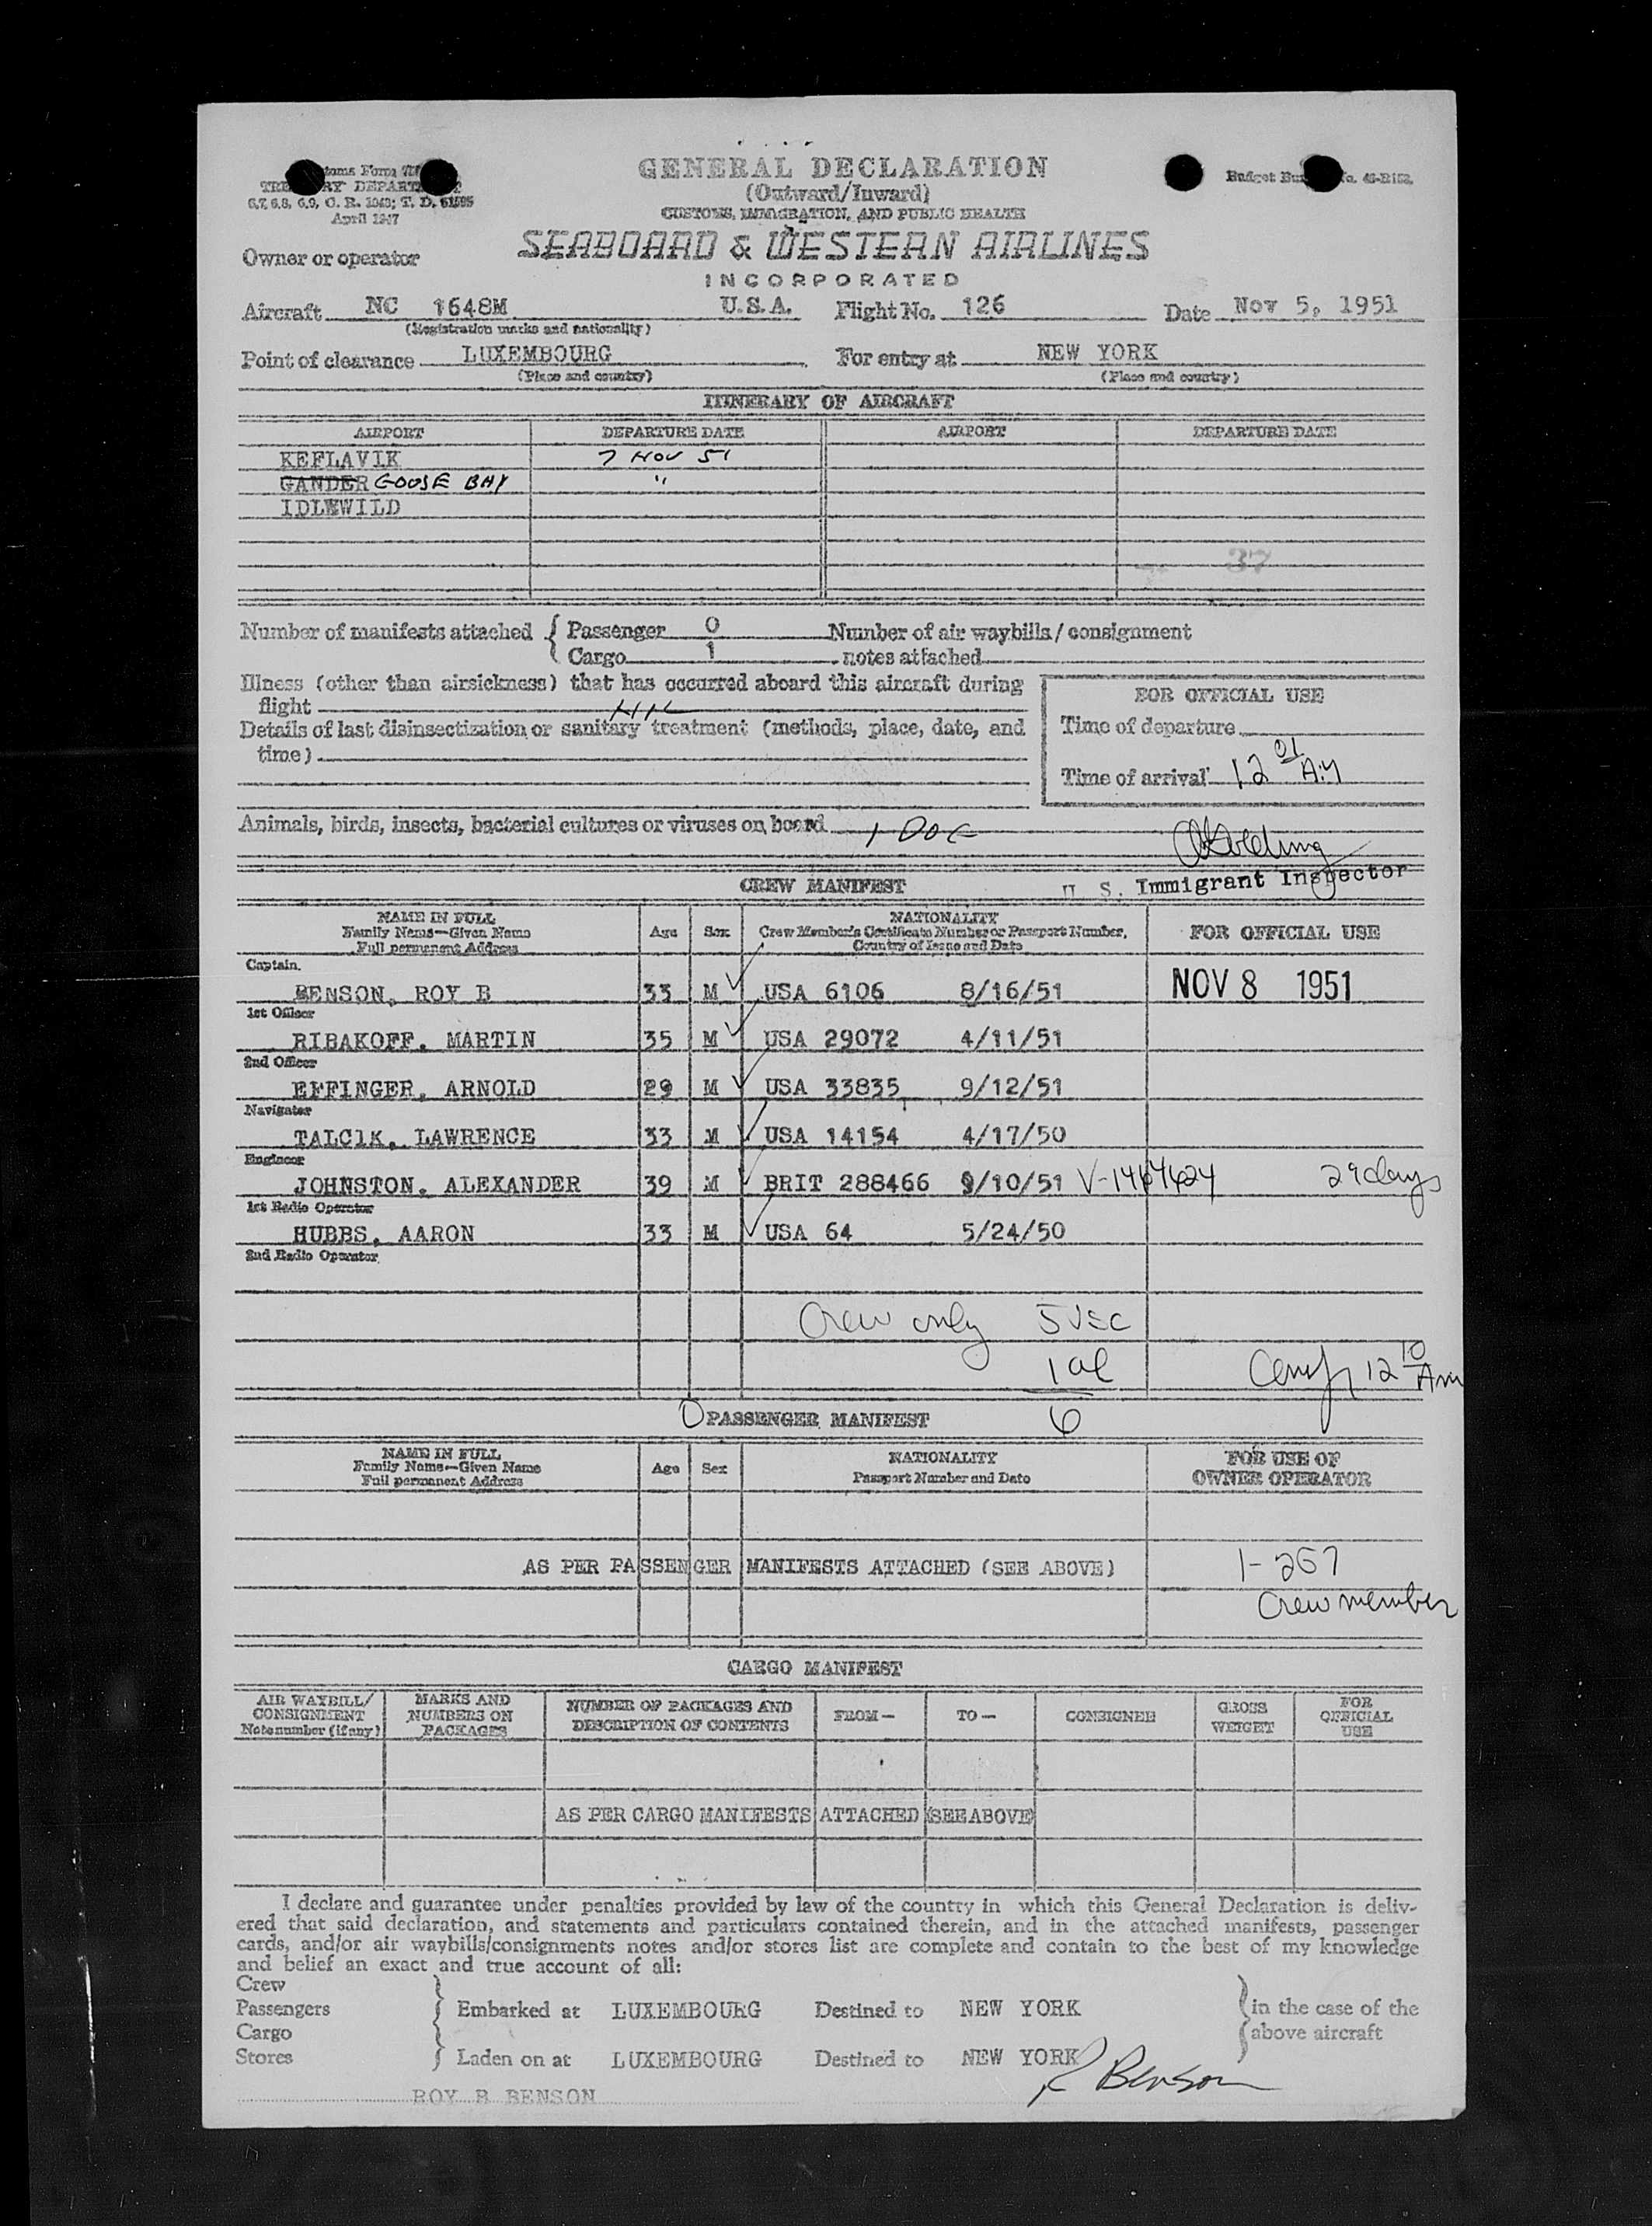 GENERAL DECLARATION
(Outward/Inward)
CUSTOMS, IMMIGRATION, AND PUBLIC HEALTH
April 1947
Budget No. 43-R152.
Owner or operator SEABOARD & WESTERN AIRLINES
INCORPORATED
Aircraft NC 1648M U.S.A. Flight No. 126 Date Nov 5, 1951
(Registration marks and nationality)
Point of clearance LUXEMBOURG For entry at NEW YORK
(Place and country) (Place and country)
ITINERARY OF AIRCRAFT
AIRPORT DEPARTURE DATE AIRPORT DEPARTURE DATE
KEFLAVIK 7 NOV 51
GANDER GOOSE BAY "
IDLEWILD
37
Number of manifests attached { Passenger 0 Number of air waybills / consignment
Cargo 1 notes attached
Illness (other than airsickness) that has occurred aboard this aircraft during
flight NIL
Details of last disinsectization or sanitary treatment (methods, place, date, and
time)
FOR OFFICIAL USE
Time of departure
Time of arrival 12 01 AM
Animals, birds, insects, bacterial cultures or viruses on board 1 DOG
U. S. Immigrant Inspector
CREW MANIFEST
NAME IN FULL
Family Name—Given Name
Full permanent Address
Age Sex
NATIONALITY
Crew Member's Certificate Number or Passport Number,
Country of Issue and Date
FOR OFFICIAL USE
Captain
BENSON, ROY B 33 M USA 6106 8/16/51 NOV 8 1951
1st Officer
RIBAKOFF, MARTIN 35 M USA 29072 4/11/51
2nd Officer
EFFINGER, ARNOLD 29 M USA 33835 9/12/51
Navigator
TALC1K, LAWRENCE 33 M USA 14154 4/17/50
Engineer
JOHNSTON, ALEXANDER 39 M BRIT 288466 9/10/51 V-1467624 29 days
1st Radio Operator
HUBBS, AARON 33 M USA 64 5/24/50
2nd Radio Operator
Crew only 5 USC
1 al 12 10 Am
0 PASSENGER MANIFEST 6
NAME IN FULL
Family Name—Given Name
Full permanent Address
Age Sex
NATIONALITY
Passport Number and Date
FOR USE OF
OWNER OPERATOR
AS PER PASSENGER MANIFESTS ATTACHED (SEE ABOVE) 1-257
Crew member
CARGO MANIFEST
AIR WAYBILL/
CONSIGNMENT
Note number (if any)
MARKS AND
NUMBERS ON
PACKAGES
NUMBER OF PACKAGES AND
DESCRIPTION OF CONTENTS
FROM—
TO—
CONSIGNEE
GROSS
WEIGHT
FOR
OFFICIAL
USE
AS PER CARGO MANIFESTS ATTACHED (SEE ABOVE)
I declare and guarantee under penalties provided by law of the country in which this General Declaration is deliv-
ered that said declaration, and statements and particulars contained therein, and in the attached manifests, passenger
cards, and/or air waybills/consignments notes and/or stores list are complete and contain to the best of my knowledge
and belief an exact and true account of all:
Crew
Passengers Embarked at LUXEMBOURG Destined to NEW YORK in the case of the
Cargo above aircraft
Stores Laden on at LUXEMBOURG Destined to NEW YORK
R Benson
ROY B BENSON